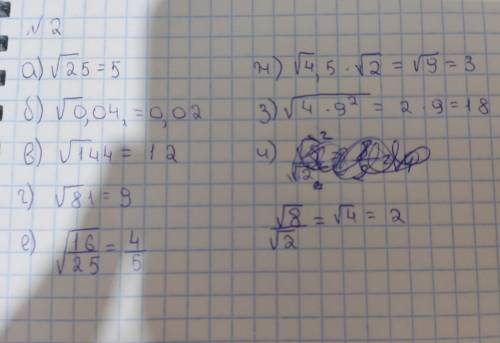 №2
а) √25 = 5
б) √0,04 = 0,02
в) √144 = 12
г) √81 = 9
е) √16/25 = 4/5
ж) √4,5 · √2 = √9 = 3
з) √4 · 9² = 2 · 9 = 18
и)
√8/√2 = √4 = 2